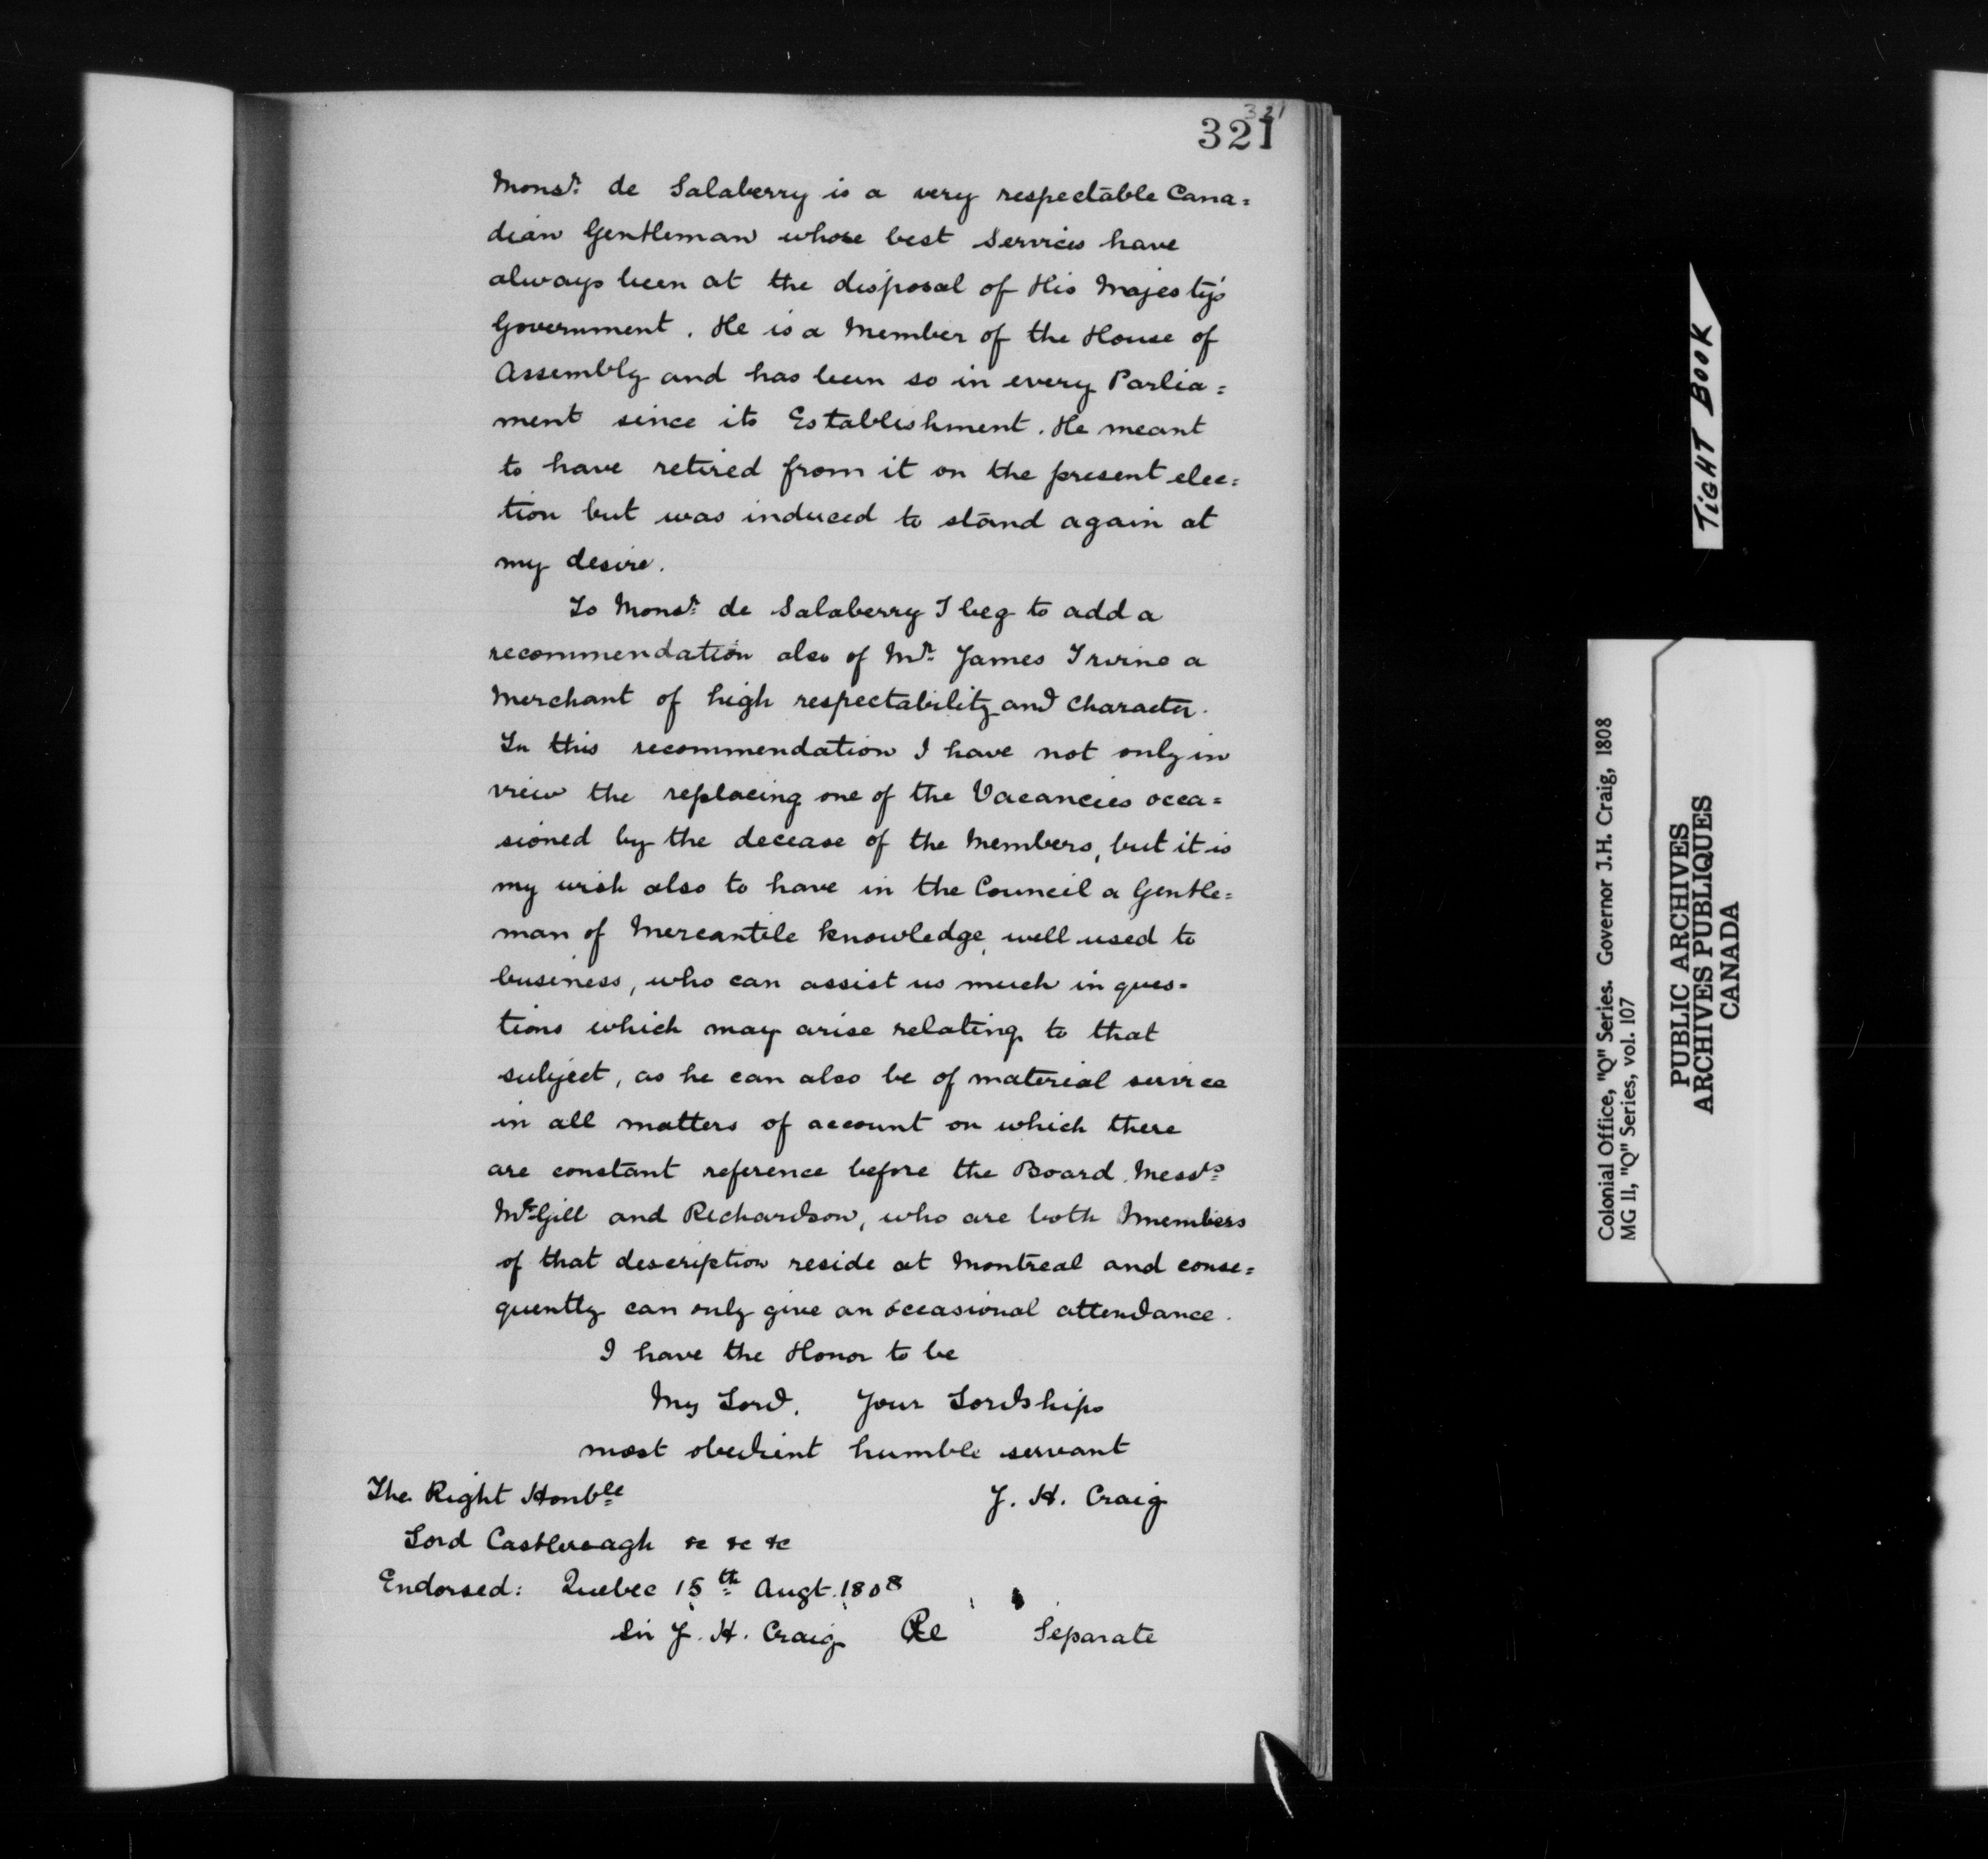 321
321
Monsr. de Salaberry is a very respectable Cana=
dian Gentleman whose best Services have
always been at the disposal of His Majesty's
Government. He is a Member of the House of
Assembly and has been so in every Parlia=
ment since its Establishment. He meant
to have retired from it on the present elec=
tion but was induced to stand again at
my desire.
To Monsr. de Salaberry I beg to add a
recommendation also of Mr. James Irvine a
Merchant of high respectability and Character.
In this recommendation I have not only in
view the replacing one of the Vacancies occa=
sioned by the decease of the Members, but it is
my wish also to have in the Council a Gentle=
man of Mercantile knowledge, well used to
business, who can assist us much in ques=
tions which may arise relating to that
subject, as he can also be of material service
in all matters of account on which there
are constant reference before the Board. Messrs.
McGill and Richardson, who are both Members
of that description reside at Montreal and conse=
quently can only give an occasional attendance.
I have the Honor to be
My Lord, Your Lordships
most obedient humble servant
The Right Honble J. H. Craig
Lord Castlereagh &c &c &c
Endorsed: Quebec 15th Augt. 1808
Sir J. H. Craig Re Separate
TIGHT BOOK
Colonial Office, "Q" Series. Governor J.H. Craig, 1808
MG 11, "Q" Series, vol. 107
PUBLIC ARCHIVES
ARCHIVES PUBLIQUES
CANADA